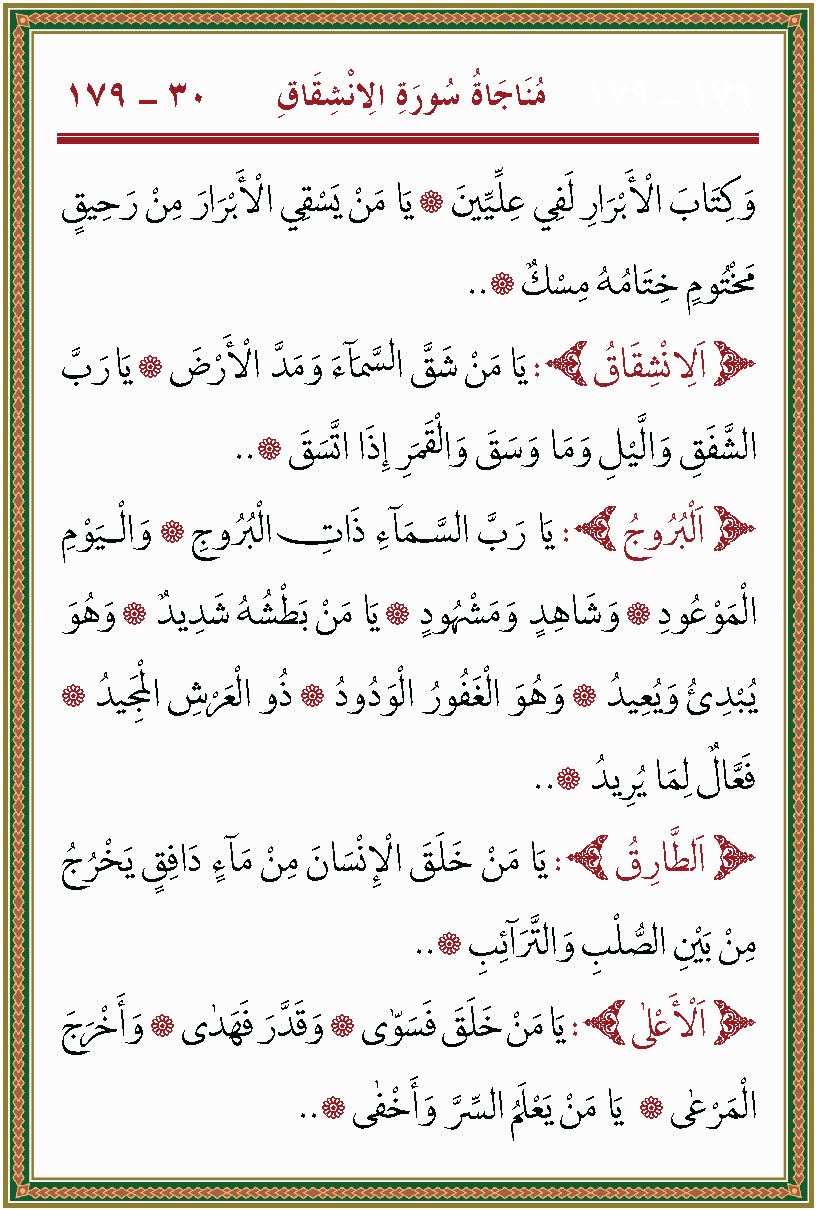 مُنَاجَاةُ سُورَةِ الِانْشِقَاقِ ٣٠ – ١٧٩
وَكِتَابَ الْأَبْرَارِ لَفِي عِلِّيِّينَ ۞ يَا مَنْ يَسْقِي الْأَبْرَارَ مِنْ رَحِيقٍ
مَخْتُومٍ خِتَامُهُ مِسْكٌ ۞..
﴿ اَلِانْشِقَاقُ ﴾: يَا مَنْ شَقَّ السَّمَآءَ وَمَدَّ الْأَرْضَ ۞ يَا رَبَّ
الشَّفَقِ وَالَّيْلِ وَمَا وَسَقَ وَالْقَمَرِ إِذَا اتَّسَقَ ۞..
﴿ اَلْبُرُوجُ ﴾: يَا رَبَّ السَّمَآءِ ذَاتِ الْبُرُوجِ ۞ وَالْيَوْمِ
الْمَوْعُودِ ۞ وَشَاهِدٍ وَمَشْهُودٍ ۞ يَا مَنْ بَطْشُهُ شَدِيدٌ ۞ وَهُوَ
يُبْدِئُ وَيُعِيدُ ۞ وَهُوَ الْغَفُورُ الْوَدُودُ ۞ ذُو الْعَرْشِ الْمَجِيدُ ۞
فَعَّالٌ لِمَا يُرِيدُ ۞..
﴿ اَلطَّارِقُ ﴾: يَا مَنْ خَلَقَ الْإِنْسَانَ مِنْ مَآءٍ دَافِقٍ يَخْرُجُ
مِنْ بَيْنِ الصُّلْبِ وَالتَّرَآئِبِ ۞..
﴿ اَلْأَعْلٰى ﴾: يَا مَنْ خَلَقَ فَسَوّٰى ۞ وَقَدَّرَ فَهَدٰى ۞ وَأَخْرَجَ
الْمَرْعٰى ۞ يَا مَنْ يَعْلَمُ السِّرَّ وَأَخْفٰى ۞..